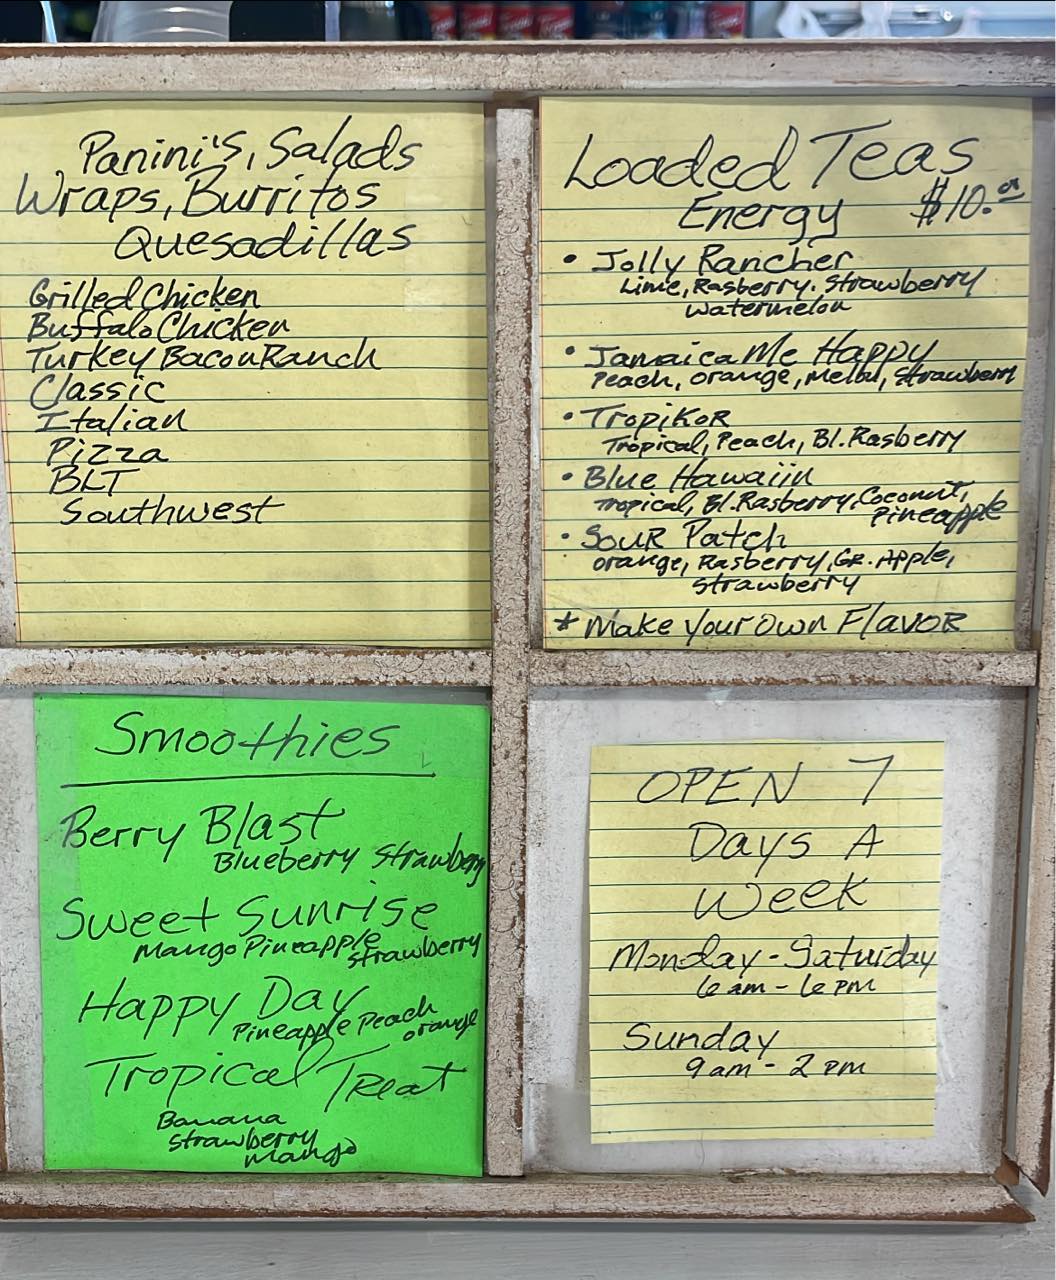 Panini's, Salads
Wraps, Burritos
Quesadillas
Grilled Chicken
Buffalo Chicken
Turkey Bacon Ranch
Classic
Italian
Pizza
BLT
Southwest
Loaded Teas
Energy $10.
• Jolly Rancher
Lime, Rasberry. Strawberry
Watermelon
• Jamaica Me Happy
Peach, orange, Melon, Strawberri
• TropiKor
Tropical, Peach, Bl. Rasberry
• Blue Hawaiin
Tropical, Bl. Rasberry, Coconut,
Pineapple
• Sour Patch
orange, Rasberry, Gr. Apple,
Strawberry
* Make Your Own Flavor
Smoothies
Berry Blast
Blueberry Strawberry
Sweet Sunrise
Mango Pineapple
Strawberry
Happy Day
Pineapple Peach
orange
Tropical Treat
Banana
Strawberry
mango
OPEN 7
Days A
Week
Monday - Saturday
6 am - 6 PM
Sunday
9 am - 2 PM